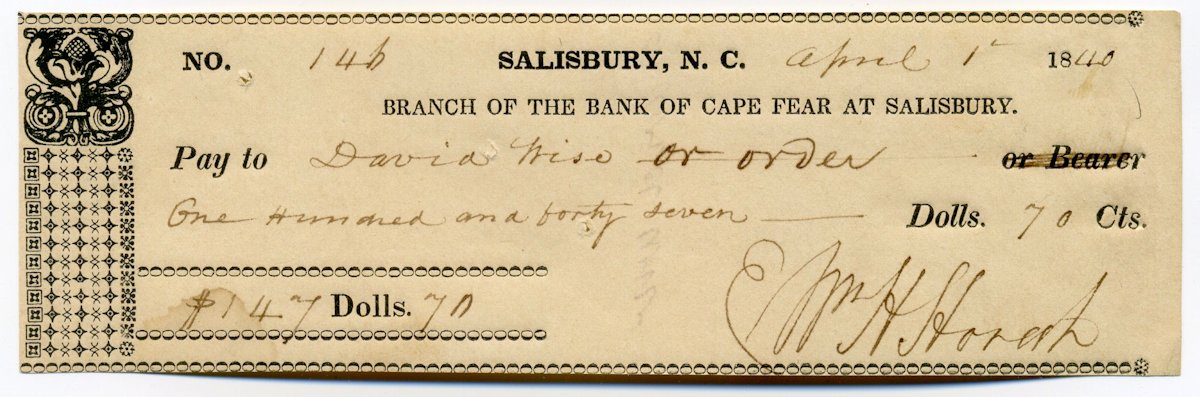 NO. 146 SALISBURY, N. C. April 1st 1840
BRANCH OF THE BANK OF CAPE FEAR AT SALISBURY.
Pay to David Wise or order or Bearer
One Hundred and forty seven Dolls. 70 Cts.
$147 Dolls. 70
Wm H Horah